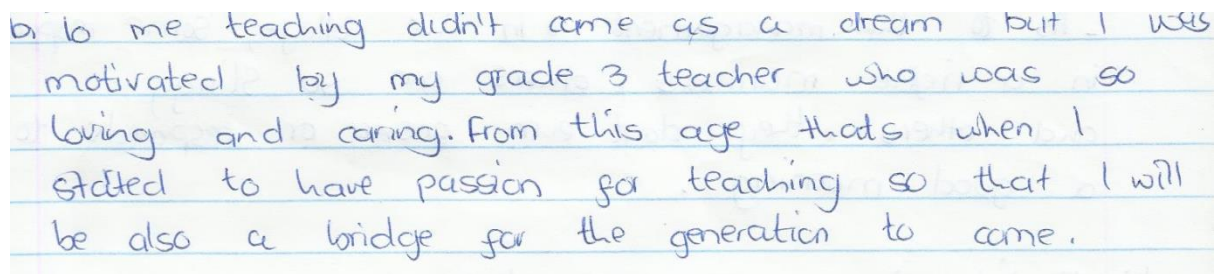 b. To me teaching didn't come as a dream but I was
motivated by my grade 3 teacher who was so
loving and caring. From this age thats when I
stated to have passion for teaching so that I will
be also a bridge for the generation to come.